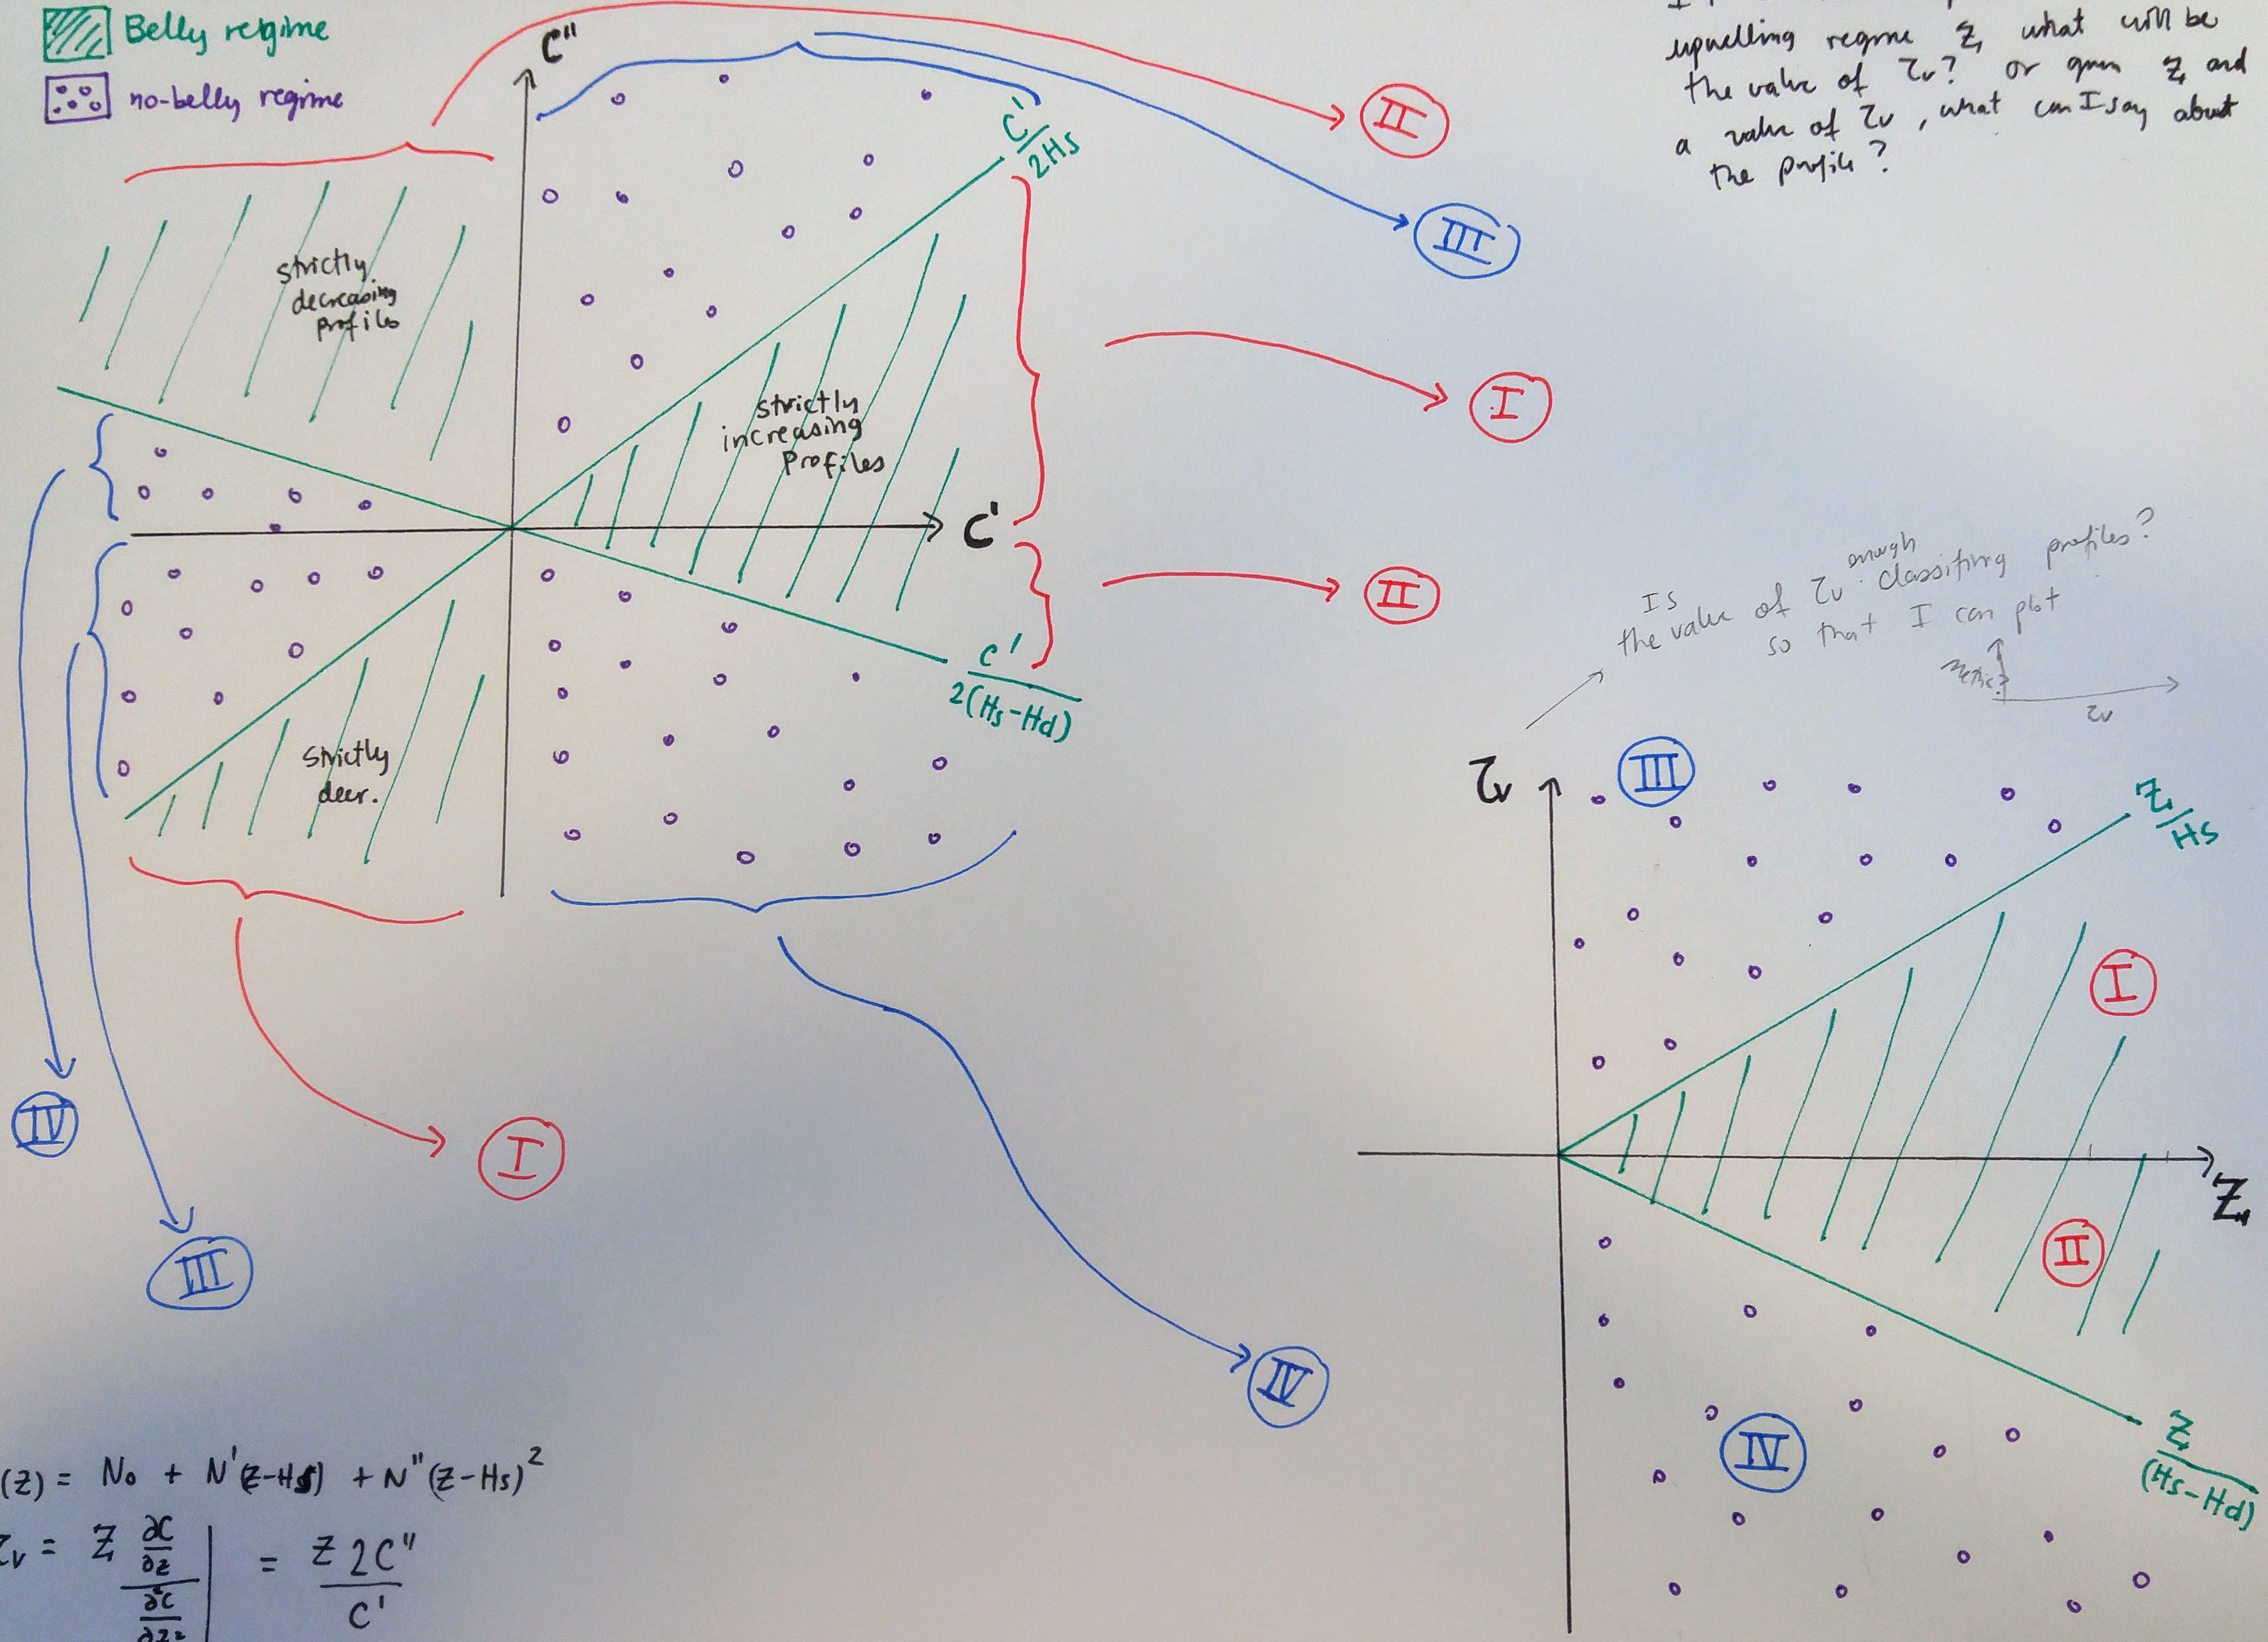 Belly regime
no-belly regime
C"
C'/2Hs
II
III
upwelling regime Z, what will be
the value of τv? or given Z and
a value of τv, what can I say about
the profile?
strictly
decreasing
profiles
strictly
increasing
Profiles
I
C'
II
C'/2(Hs-Hd)
Is
the value of τv enough classifing profiles?
so that I can plot
τv
strictly
decr.
τv
III
Z/Hs
I
IV
I
Z
II
III
IV
IV
Z/(Hs-Hd)
(Z) = No + N'(Z-Hs) + N"(Z-Hs)²
τv = Z ∂C/∂z / ∂²C/∂z² | = Z 2C"/C'